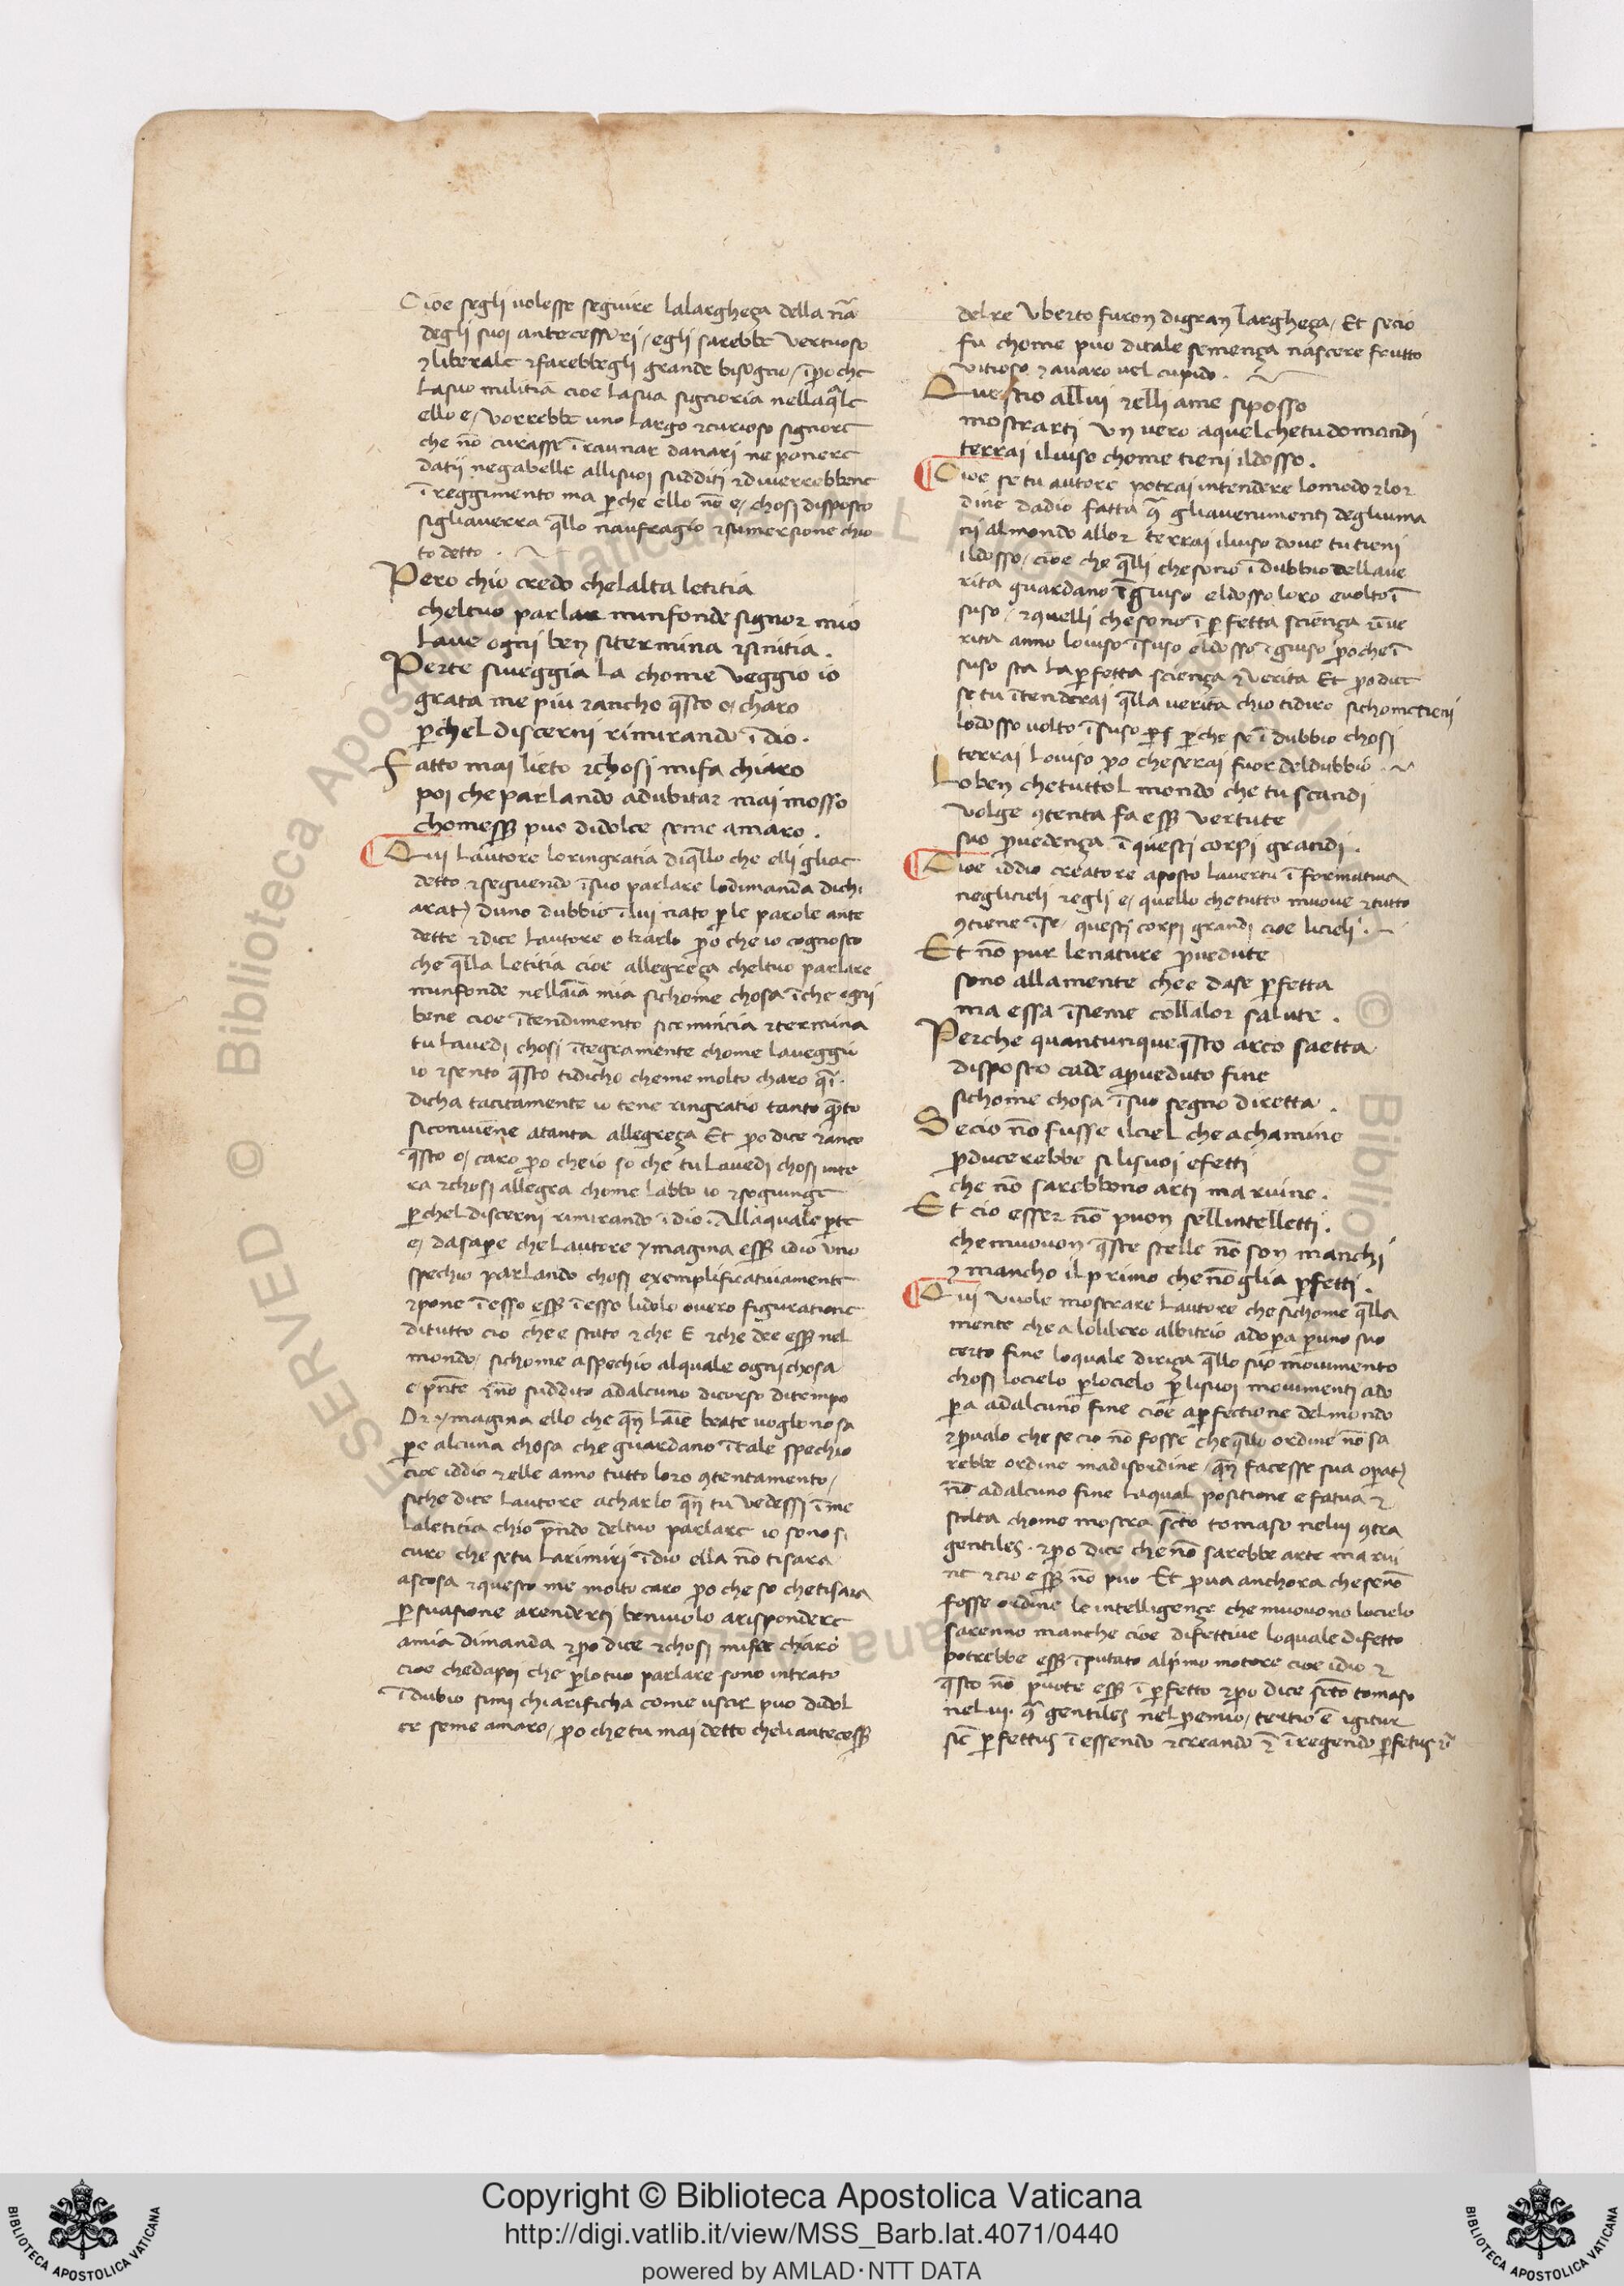 Cioe segli uolesse seguire lalargheça della nã
degli suoi antecessori / egli sarebbe vertuoso
⁊ liberale ⁊ farebbegli grande bisogno / ĩpo che
La suo militia cioe La sua signoria nella q̃le
ello e / vorrebbe uno Largo ⁊ curioso signore
che nõ curasse ĩ raunar danari ne ponere
datii ne gabelle alli suoi sudditi ⁊ diuerrebbene
ĩ reggimento ma p̱che ello nõ e / chosi disposto
sigli auerra q̃llo naufragio ⁊ sumersione chio
to detto .
Pero chio credo chelalta letitia
cheltuo parlar minfonde signor mio
Laue ogni ben sitermina ⁊ sinitia .
Perte siueggia la chome veggio io
grata me piu ⁊ ancho q̃sto o / charo
p̱chel discerni rimirando ĩ dio .
Fatto mai lieto ⁊ chosi mifa chiaro
poi che parlando adubitar mai mosso
chomess̃ puo didolce seme amaro .
Qui Lautore loringratia diq̃llo che elli gliae
detto ⁊ seguendo ĩ suo parlare lodimanda dichi
arat) duno dubbio ĩ lui nato p̱ le parole ante
dette ⁊ dice Lautore o karlo po che io cognosco
che q̃lla Letitia cioe allegreça cheltuo parlare
minfonde nellaĩa mia sichome chosa ĩ che ogni
bene cioe ĩtendimento sicomincia ⁊ termina
tu Lauedi chosi ĩtegramente chome laueggio
io ⁊ sento q̃sto tidicho cheme molto charo q̃i .
dicha tacitamente io tene ringratio tanto q̃to
siconuiene atanta allegreça Et po dice ⁊ anco
q̃sto o / caro po che io so che tu Lauedi chosi inte
ra ⁊ chosi allegra chome labbo io ⁊ sogiunge
p̱chel discerni rimirando ĩ dio . Alla quale p̱te
e / dasap̱e che Lautore ymagina ess̃ idio uno
spechio parlando chosi exemplificatiuamente
⁊ pone ĩ esso ess̃ ĩ esso lidolo ouero figuratione
ditutto cio che e stato ⁊ che e ⁊ che dee ess̃ nel
mondo / sichome aspechio alquale ogni chosa
e p̃nte ⁊ nõ suddito adalcuno dicorso ditempo
Or ymagina ello che qñ laĩe beate uoglono sa
p̱e alcuna chosa che guardano ĩ tale spechio
cioe iddio ⁊ elle anno tutto loro ɔtentamento /
siche dice Lautore acharlo qñ tu vedessi ĩ me
Laletitia chio p̃ndo deltuo parlare io sono si
curo che setu Larimiri ĩ dio ella nõ tisara
ascosa ⁊ questo me molto caro po che so chetisara
p̱suasione arenderti beniuolo arispondere
amia dimanda ⁊ po dice ⁊ chosi mifa chiaro
cioe chedapoi che p̱ lo tuo parlare sono intrato
ĩ dubio simi chiarificha come uscir puo didol
ce seme amaro / po che tu mai detto cheli antecess̃
del re Vberto furon digran largheça / Et secio
fu chome puo ditale semença nascere frutto
uitioso ⁊ auaro uel cupido .
Questio allui ⁊ elli ame siposso
mostrarti vn vero aquelchetudomandi
terrai iluiso chome tieni ildosso .
Cioe se tu autore potrai intendere lomodo ⁊ lor
dine dadio fatta q̃ gliauenimenti degliuma
ni almondo allor terrai iluiso doue tu tieni
ildosso / cioe che q̃lli che sono ĩ dubbio dellaue
rita guardano ĩ giuso eldosso loro euolto ĩ
suso / ⁊ quelli che sono ĩ p̱fetta sciença ⁊ ĩ ue
rita anno louiso ĩ suso eldosso ĩ giuso po che ĩ
suso sta la p̱fetta sciença ⁊ verita Et po dice
se tu ĩtenderai q̃lla verita chio tidiro sichometieni
lodosso uolto ĩ suso p̱ p̱che se ĩ dubbio chosi
terrai Louiso po che serai fuor deldubbio .
Lo ben chetuttol mondo che tu scandi
volge ɔtenta fa ess̃ vertute
suo puedença ĩ questi corpi grandi .
Cioe iddio creatore aposto lauertu ĩ formatiua
neglicieli ⁊ egli e / quello chetutto muoue ⁊ tutto
ɔtiene ĩ se / questi corpi grandi cioe licieli .
Et nõ pur lenature puedute
sono allamente chee dase p̱fetta
ma essa ĩsieme collalor salute .
Perche quantunqueq̃sto arco saetta
disposto cade apueduto fine
sichome chosa ĩ suo segno diretta .
Secio nõ fusse ilciel che achamine
pducerebbe si lisuoi efetti
che nõ sarebbono arti ma ruine .
Et cio esser nõ puon sellintelletti .
chemuouon q̃ste stelle nõ son manchi
⁊ mancho ilprimo che nõ glia p̱fetti .
Qui vuole mostrare Lautore che sichome q̃lla
mente che a lolibero albitrio adop̱a p̱ uno suo
certo fine loquale diriça q̃llo suo mouimento
chosi locielo p̱ locielo p̱ lisuoi mouimenti ado
p̱a adalcuno fine cioe ap̱fectione delmondo
⁊ pualo che se cio nõ fosse che q̃llo ordine nõ sa
rebbe ordine madisordine / qñ facesse sua op̱at)
nõ adalcuno fine laqual positione e fatua ⁊
stolta chome mostra sc̃to tomaso nelui ɔtra
gentiles . ⁊ po dice che nõ sarebbe arte ma rui
ne ⁊ cio ess̃ nõ puo Et pua anchora chesenõ
fosse ordine le intelligençe che muouono locielo
sarenno manche cioe difettiue loquale difetto
potrebbe ess̃ ĩputato alp̃mo motore cioe idio ⁊
q̃sto nõ puote ess̃ ĩ p̱fetto ⁊ po dice sc̃to tomaso
nelui . q̃ gentiles nel pemio / tertio ẽ igitur
sic̃ p̱fettus ĩ essendo ⁊ creando ⁊ ĩ regendo p̱fetus ⁊c̃
Copyright © Biblioteca Apostolica Vaticana
http://digi.vatlib.it/view/MSS_Barb.lat.4071/0440
powered by AMLAD·NTT DATA
BIBLIOTECA APOSTOLICA VATICANA
BIBLIOTECA APOSTOLICA VATICANA